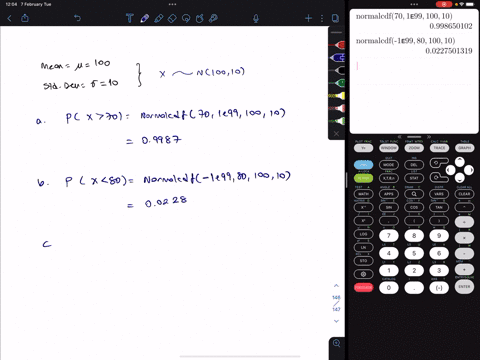 12:04 7 February Tue
normalcdf(70, 1ᴇ99, 100, 10)
0.998650102
normalcdf(-1ᴇ99, 80, 100, 10)
0.0227501319
Mean = μ = 100
Std. Dev = σ = 10
X ~ N(100,10)
a. P( X > 70) = Normalcdf( 70, 1e99, 100, 10)
= 0.9987
b. P ( X < 80) = Normalcdf(-1e99, 80, 100, 10)
= 0.0228
c
148
147
WINDOW ZOOM TRACE GRAPH
MODE DEL
ALPHA X,T,θ,n STAT
MATH APPS VARS CLEAR
7 8 9
LOG 4 5 6
LN 1 2 3
STO
0 . (-) ENTER